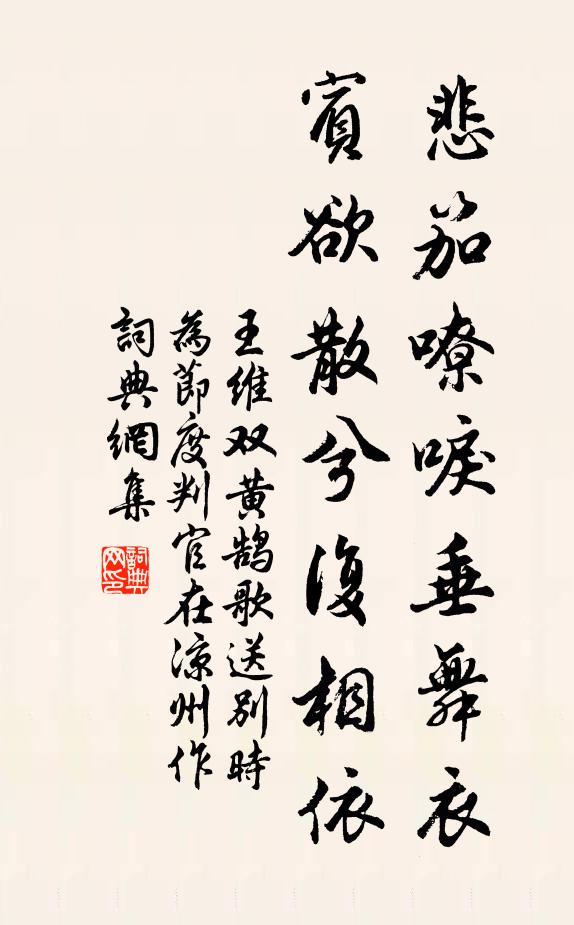 悲笳嘹唳垂舞衣
賓欲散兮復相依
王維双黄鹄歌送别時
為節度判官在凉州作
詞典網集
詞典
网印